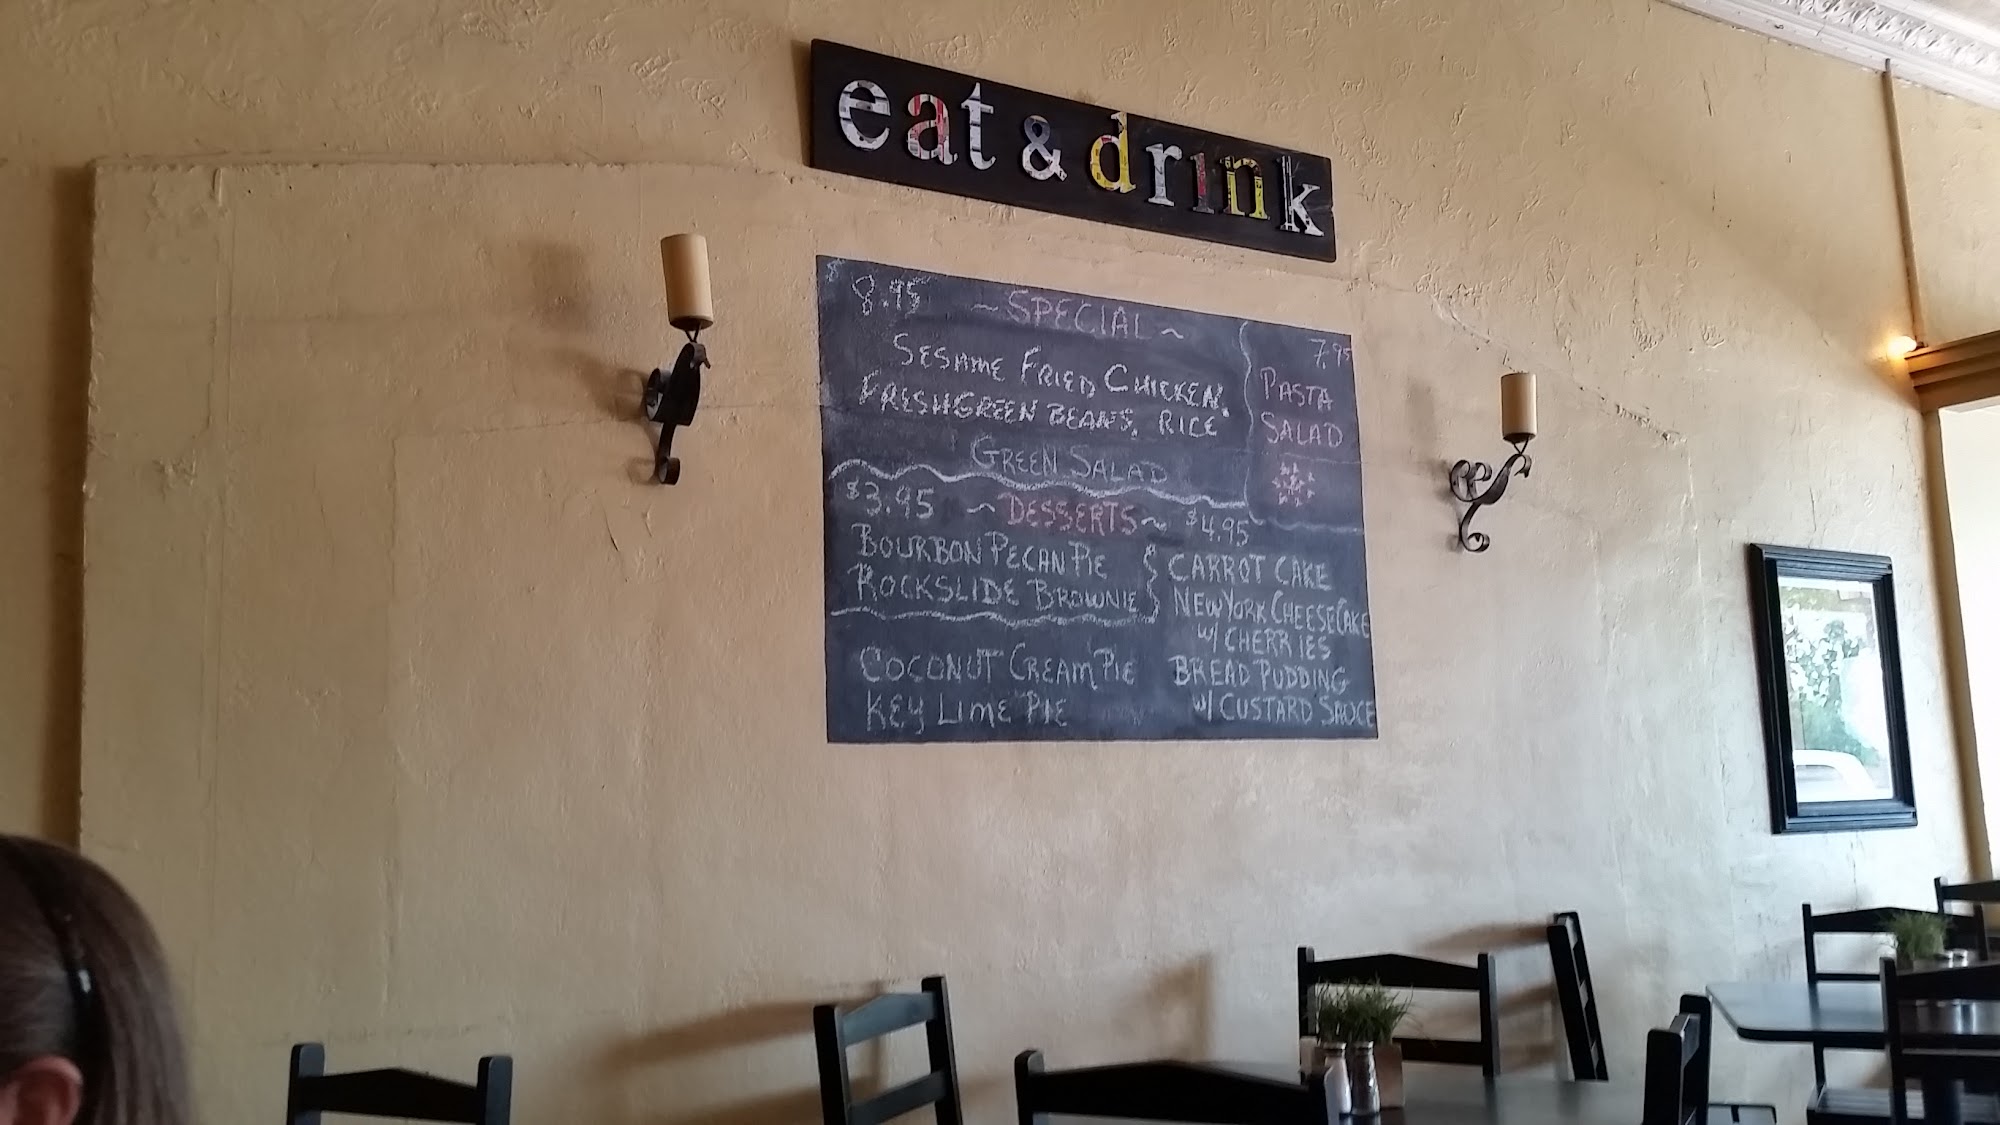 eat & drink
$8.95 ~ SPECIAL ~
SESAME FRIED CHICKEN,
FRESH GREEN BEANS, RICE
GREEN SALAD
7.95
PASTA
SALAD
$3.95 ~ DESSERTS ~ $4.95
BOURBON PECAN PIE
ROCKSLIDE BROWNIE
COCONUT CREAM PIE
KEY LIME PIE
CARROT CAKE
NEW YORK CHEESECAKE
W/ CHERRIES
BREAD PUDDING
W/ CUSTARD SAUCE